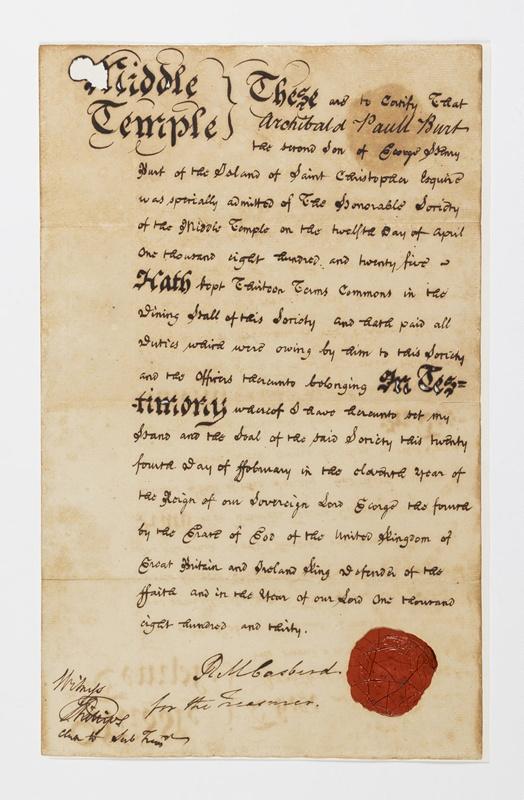 Middle Temple } These are to Certify That
Archibald Paull Burt
the second Son of George Henry
Burt of the Island of Saint Christopher Esquire
was specially admitted of The Honorable Society
of the Middle Temple on the twelfth Day of April
One thousand eight hundred and twenty five
Hath kept Thirteen Terms Commons in the
Dining Hall of this Society and hath paid all
Duties which were owing by him to this Society
and the Officers thereunto belonging In Tes=
timony whereof I have hereunto set my
Hand and the Seal of the said Society this twenty
fourth Day of ffebruary in the eleventh Year of
the Reign of our Sovereign Lord George the fourth
by the Grace of God of the United Kingdom of
Great Britain and Ireland King Defender of the
ffaith and in the Year of our Lord One thousand
eight hundred and thirty.
R M Casberd.
for the Treasurer.
Witness
to Sub Trear